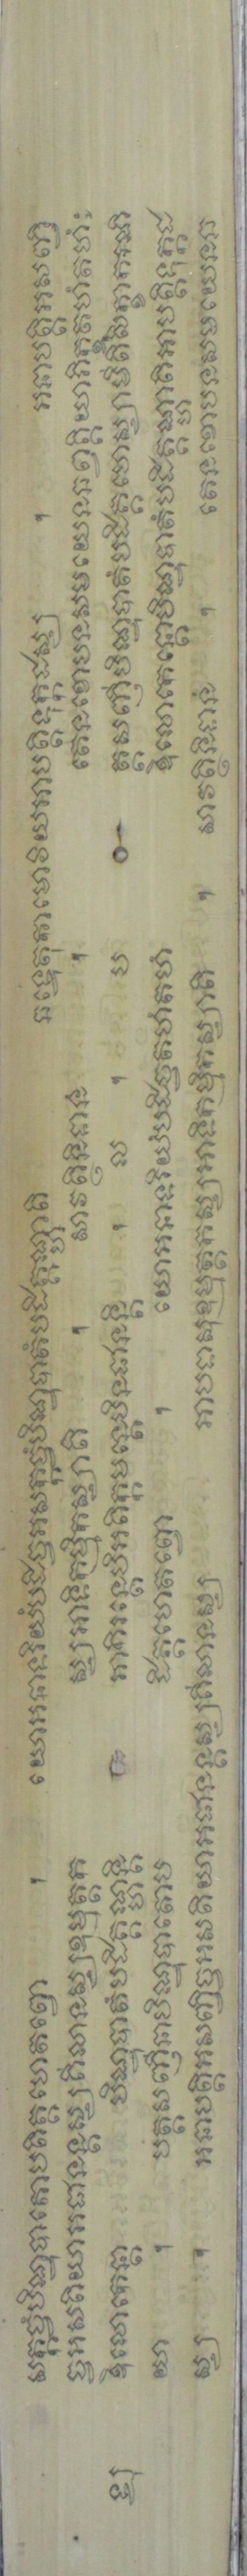 សក្កច្ចំបិណ្ឌបាតោបដិគ្គហេតព្វោ ។ យោអនាទរិយំបដិច្ចអសក្កច្ចំបិណ្ឌបាតំបដិគ្គណ្ហាតិ ឆឌ្ឌេតុកាមោវិយអាបត្តិទុក្កដស្ស ។ អនាបត្តិអសញ្ចិ
ច្ចអសតិយាអជានន្តស្សគិលានស្សឧម្មត្តក ស្សអាទិកម្មិកស្សាតិ ។ សាវត្ថិនិទានំ ។ តេនខោបនសមយេនឆព្វគ្គិយាភិក្ខូតហំតហំ
ឱលោកេន្តា បិណ្ឌបាតំបដិគ្គណ្ហន្តិ អាកិរន្តេបិអតិក្កមន្តេបិនជានន្តិ ។ ល ។ ប ត្តសញ្ញីបិណ្ឌបាតំបដិគ្គហេស្សាមីតិសិក្ខាករណី
យា ។ បត្តសញ្ញិនាបិណ្ឌបាតោប ដិគ្គហេតព្វោ ។ យោអនាទរិយំបដិច្ចតហំតហំ ឱលោកេន្តោបិណ្ឌបាតំបដិគ្គណ្ហាតិអាបត្តិទុក្កដ
ស្ស ។ អនាបត្តិអសញ្ចិច្ចអសតិយាអជានន្តស្សគិលានស្ស អាបទាសុឧម្មត្តកស្សអាទិកម្មិកស្សាតិ ។ សាវត្ថិនិទានំ ។ តេនខោបនសមយេនឆ